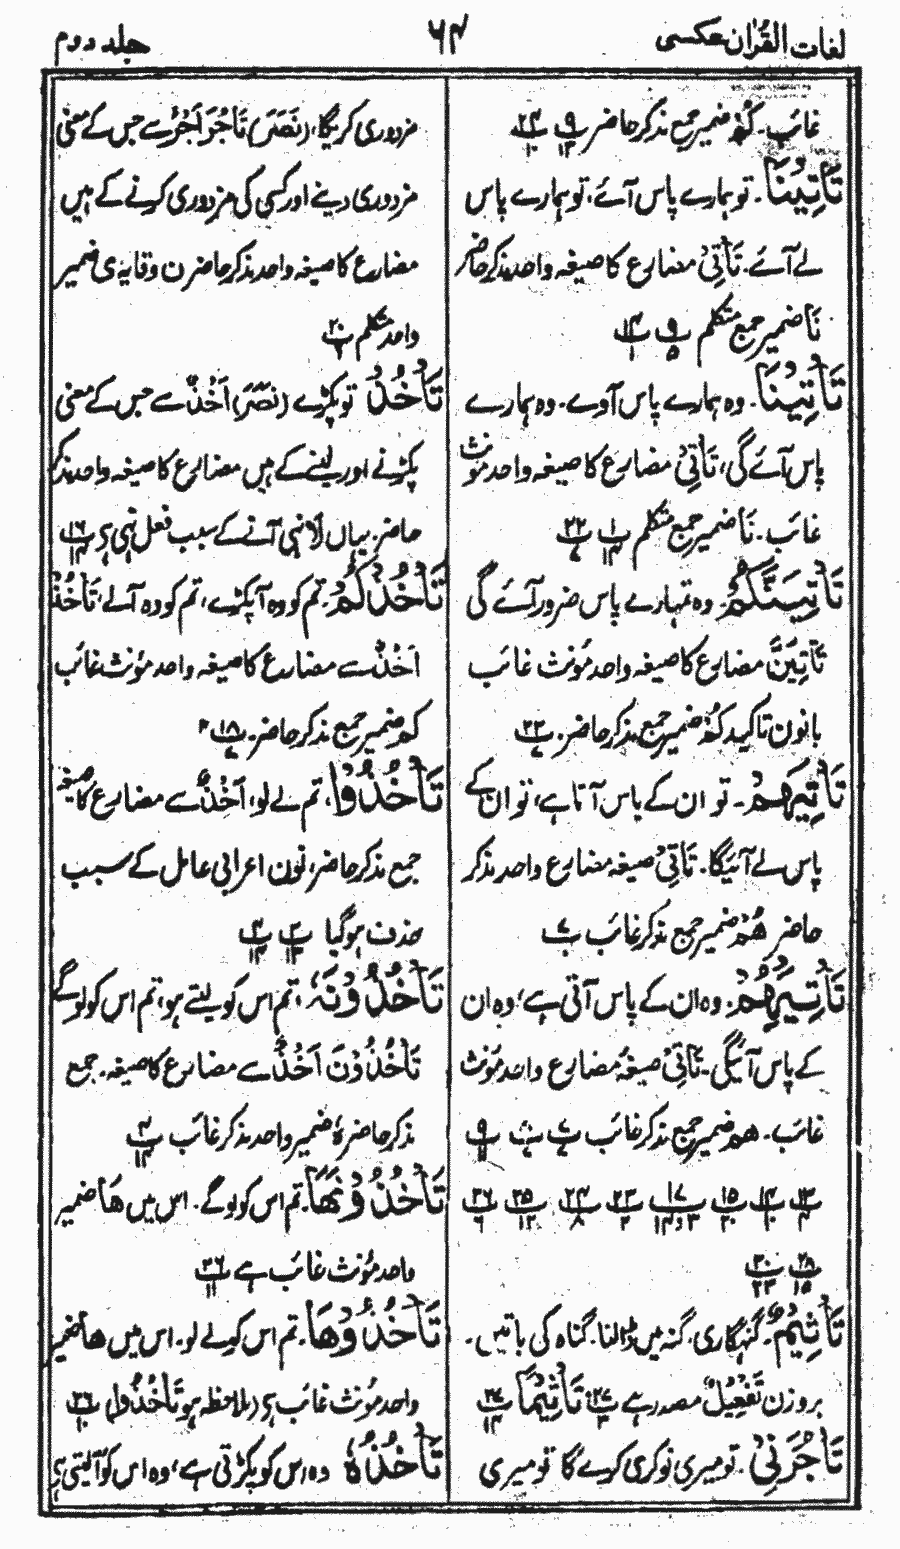 لغات القرآن عکسی
۶۴
جلد دوم
غائب۔ کُمْ ضمیر جمع مذکر حاضر
تَأْتِيَنَا۔ تو ہمارے پاس آئے، تو ہمارے پاس
لے آئے۔ تَأْتِیْ مضارع کا صیغہ واحد مذکر حاضر
نَا ضمیر جمع متکلم
تَأْتِيْنَا۔ وہ ہمارے پاس آوے۔ وہ ہمارے
پاس آئے گی، تَأْتِیْ مضارع کا صیغہ واحد مؤنث
غائب۔ نَا ضمیر جمع متکلم
تَأْتِيَنَّكُمْ۔ وہ تمہارے پاس ضرور آئے گی
تَأْتِيَنَّ مضارع کا صیغہ واحد مؤنث غائب
بانون تاکید کُمْ ضمیر جمع مذکر حاضر۔
تَأْتِيْهِمْ۔ تو ان کے پاس آتا ہے، تو ان کے
پاس لے آئیگا۔ تَأْتِیْ صیغہ مضارع واحد مذکر
حاضر هُمْ ضمیر جمع مذکر غائب
تَأْتِيْهِمْ۔ وہ ان کے پاس آتی ہے، وہ ان
کے پاس آئیگی۔ تَأْتِیْ صیغہ مضارع واحد مؤنث
غائب۔ ھم ضمیر جمع مذکر غائب
تَأْثِيْمٌ۔ گنہگاری۔ گنہ میں ڈالنا۔ گناہ کی باتیں۔
بروزن تَفْعِيْلٌ مصدر ہے تَأْثِيْمًا
تَأْجُرَنِيْ۔ تو میری نوکری کرے گا تو میری
مزدوری کریگا، (نَصَرَ) تَأْجُرَ اَجْرٌ سے جس کے معنی
مزدوری دینے اور کسی کی مزدوری کرنے کے ہیں
مضارع کا صیغہ واحد مذکر حاضر ن وقایہ ی ضمیر
واحد متکلم
تَأْخُذْ تو پکڑے (نَصَرَ) اَخْذٌ سے جس کے معنی
پکڑنے اور لینے کے ہیں مضارع کا صیغہ واحد مذکر
حاضر۔ یہاں لَا نہی آنے کے سبب فعل نہی ہے
تَأْخُذْكُمْ۔ تم کو وہ آ پکڑے، تم کو وہ آ لے، تَأْخُذْ
اَخْذٌ سے مضارع کا صیغہ واحد مؤنث غائب
کم ضمیر جمع مذکر حاضر۔
تَأْخُذُوْا، تم لے لو، اَخْذٌ سے مضارع کا صیغہ
جمع مذکر حاضر، نون اعرابی عامل کے سبب
حذف ہوگیا
تَأْخُذُوْنَهٗ، تم اس کو لیتے ہو، تم اس کو لو گے
تَأْخُذُوْنَ اَخْذٌ سے مضارع کا صیغہ۔ جمع
مذکر حاضر هٗ ضمیر واحد مذکر غائب
تَأْخُذُوْنَهَا۔ تم اس کو لو گے۔ اس میں هَا ضمیر
واحد مؤنث غائب ہے
تَأْخُذُوْهَا۔ تم اس کو لے لو۔ اس میں ھا ضمیر
واحد مؤنث غائب ہے (ملاحظہ ہو تَأْخُذُوْا)
تَأْخُذُهٗ وہ اس کو پکڑتی ہے، وہ اس کو آ لیتی ہے